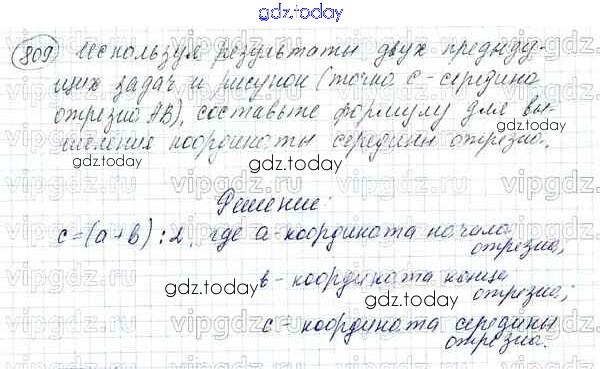 gdz.today
809) Используя результаты двух предыду-
щих задач и рисунок (точка C - середина
отрезка AB), составьте формулу для вы-
числения координаты середины отрезка.
gdz.today
gdz.today
Решение:
c=(a+b):2, где a-координата начала
отрезка,
gdz.today
b - координата конца
отрезка;
gdz.today
c - координата середины
отрезка.
gdz.today
vipgdz.ru